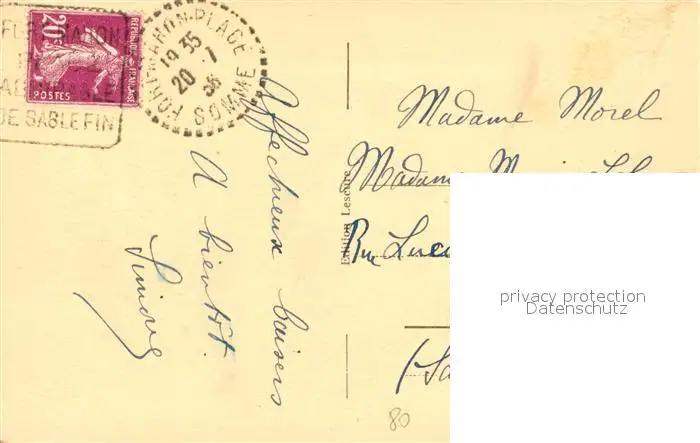 FORT MAHON
DE SABLE FIN
20c
REPUBLIQUE FRANÇAISE
POSTES
FORT-MAHON-PLAGE
19 35
20 - 7
36
SOMME
Affectueux baisers
A bientôt.
Simone
Edition Lescure
Madame Morel
Madame
Rue
80
privacy protection
Datenschutz